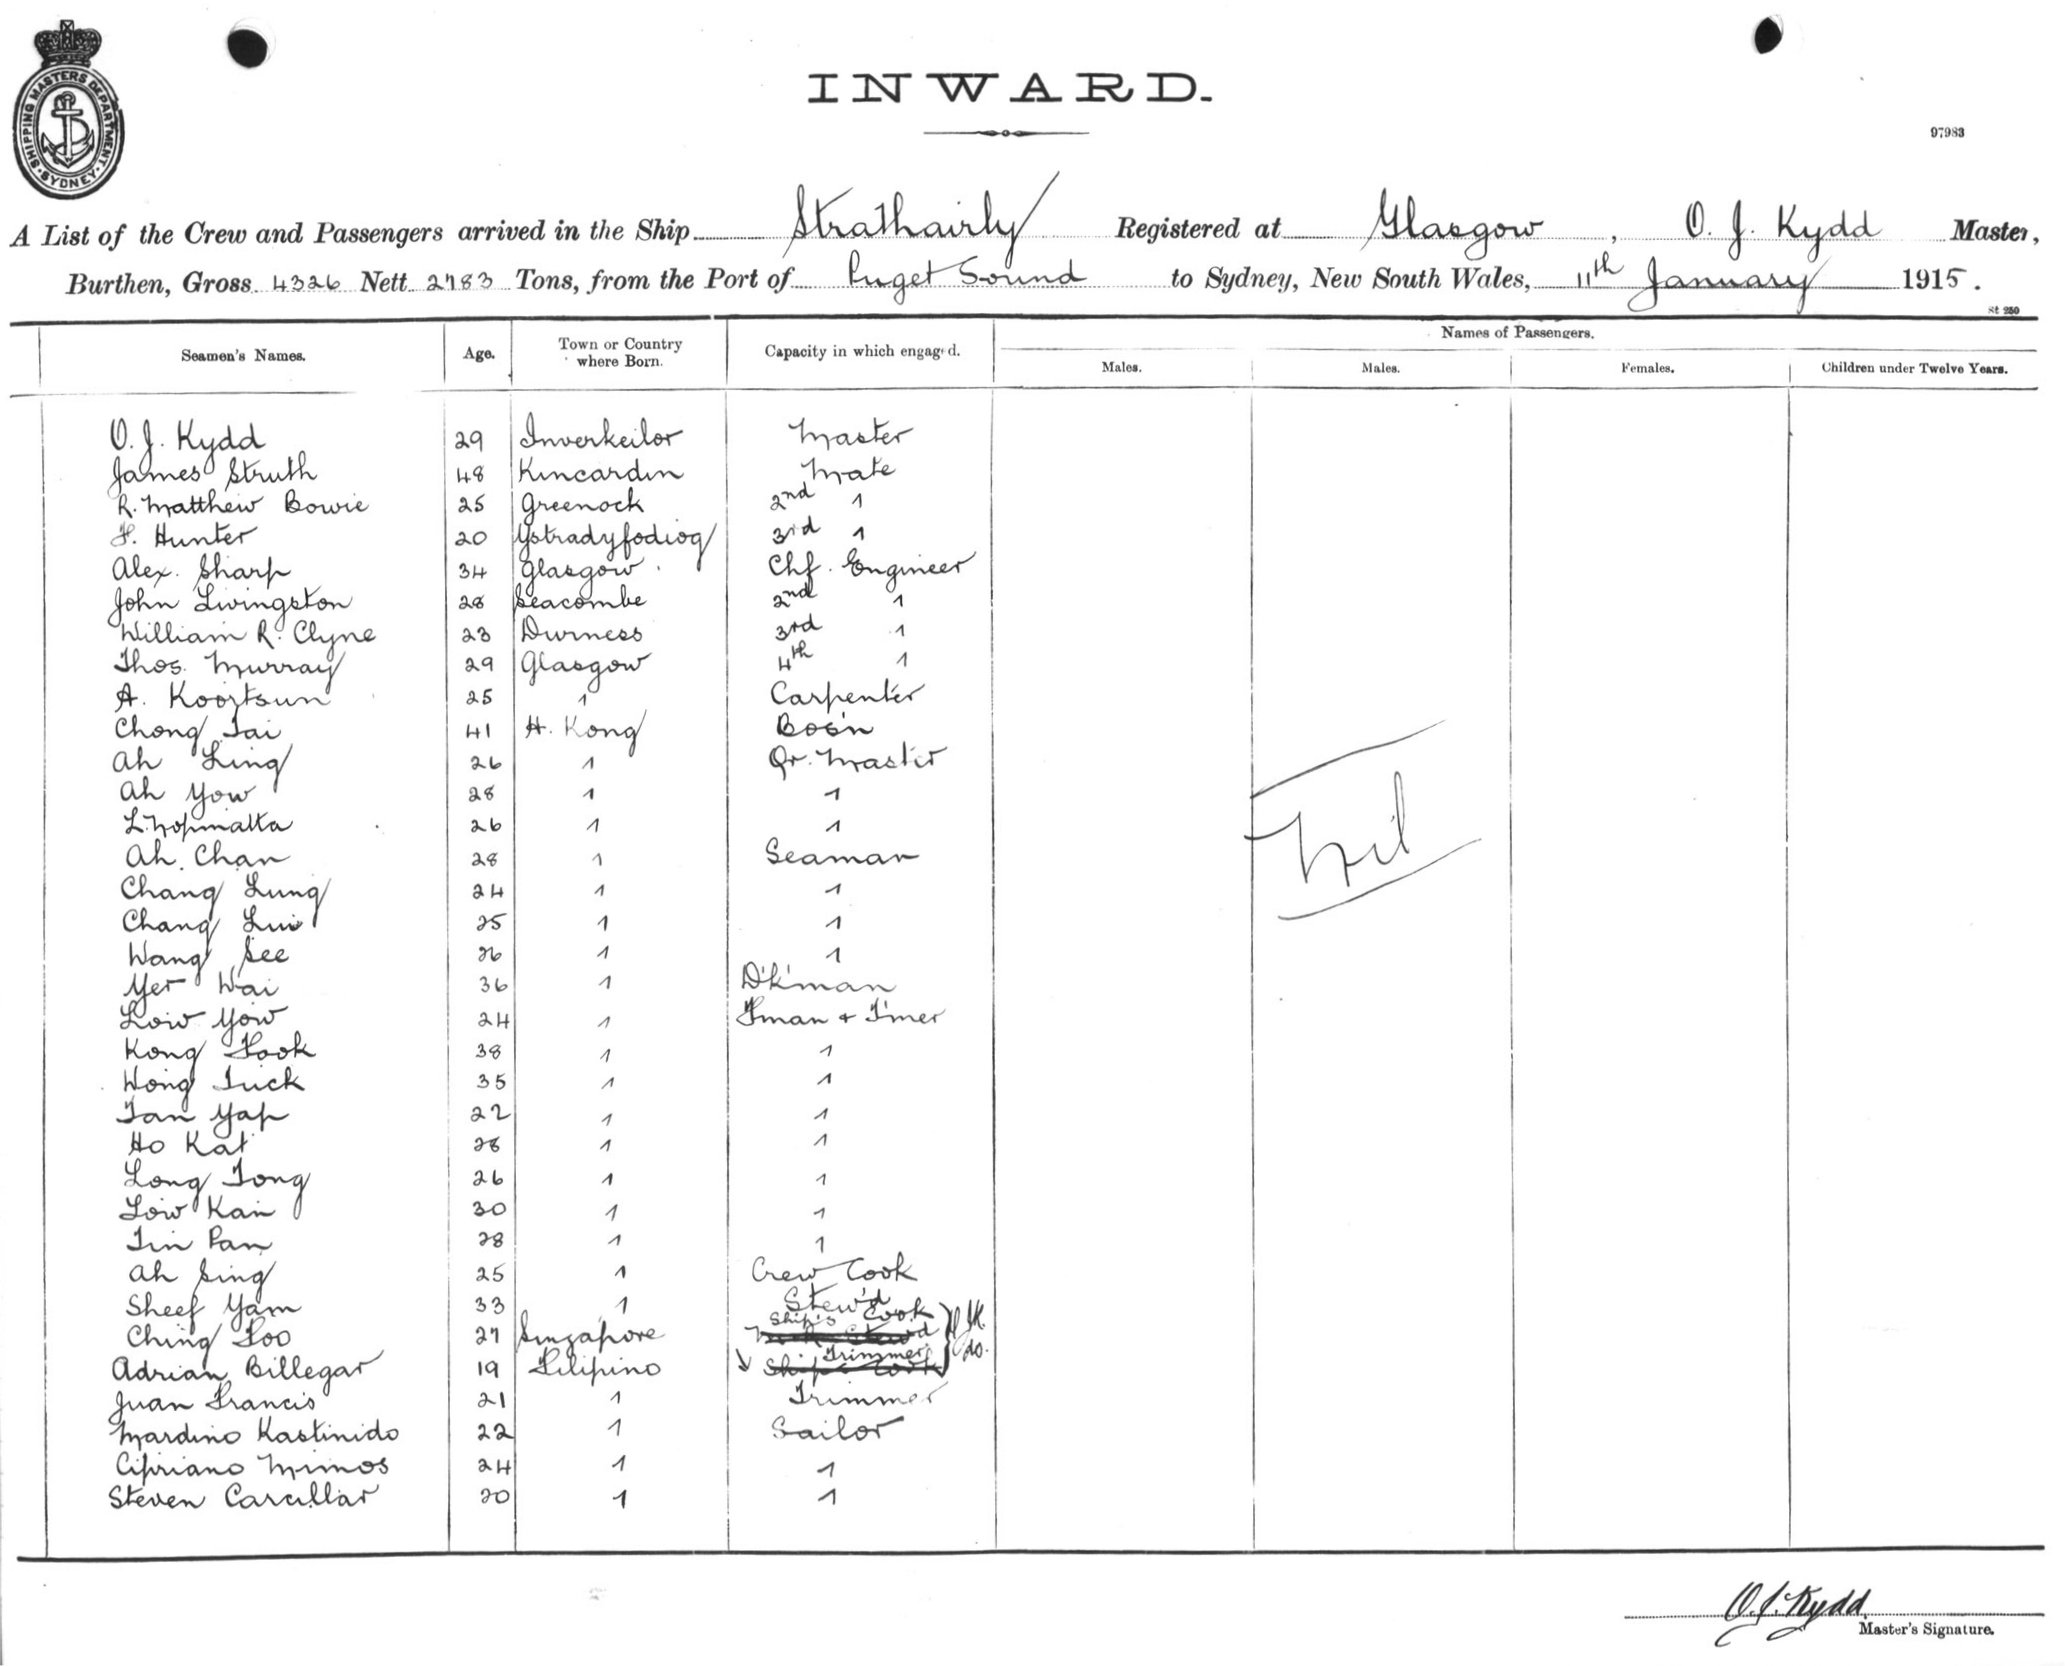 SHIPPING MASTERS DEPARTMENT
SYDNEY
INWARD.
97983
A List of the Crew and Passengers arrived in the Ship Strathairly Registered at Glasgow, O. J. Kydd Master,
Burthen, Gross 4326 Nett 2783 Tons, from the Port of Puget Sound to Sydney, New South Wales, 11th January 1915.
St 250
Names of Passengers.
Seamen's Names. Age. Town or Country where Born. Capacity in which engaged. Males. Males. Females. Children under Twelve Years.
O. J. Kydd 29 Inverkeilor Master
James Struth 48 Kincardin Mate
R. Matthew Bowie 25 Greenock 2nd "
F. Hunter 20 Ystradyfodiog 3rd "
Alex. Sharp 34 Glasgow Chf. Engineer
John Livingston 28 Seacombe 2nd "
William R. Clyne 23 Durness 3rd "
Thos. Murray 29 Glasgow 4th "
A. Koortsun 25 " Carpenter
Chong Tai 41 H. Kong Bos'n
Ah Ling 26 " Qr. Master
Ah Yow 28 " "
26 " "
Ah Chan 28 " Seaman
Chang Lung 24 " "
Chang Lui 25 " "
Wang See 26 " "
Yer Wai 36 " D'k'man
Low Yow 24 " F'man & T'mer
Kong Fook 38 " "
Wong Tuck 35 " "
Tan Yap 22 " "
Ho Kat 28 " "
Long Tong 26 " "
Low Kan 30 " "
Tin Pan 28 " "
Ah Sing 25 " Crew Cook
Sheef Yam 33 " Stew'd
Ching Foo 27 Singapore Ship's Cook
Adrian Billegar 19 Filipino Trimmer
Juan Francis 21 " Trimmer
Mardino Kastinido 22 " Sailor
Cipriano Mimos 24 " "
Steven Carcillar 20 " "
Nil
O. J. Kydd
Master's Signature.